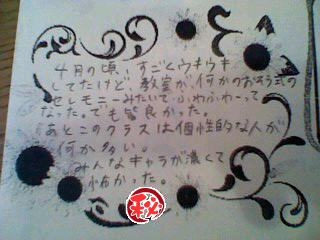 4月の頃、すごくウキウキ
してたけど、教室が、何かのおそう式の
セレモニーみたいで、ふわふわ〜って
なった。でも皆良かった。
あとこのクラスは個性的な人が
何か多い。
みんなキャラが濃くて
怖かった。